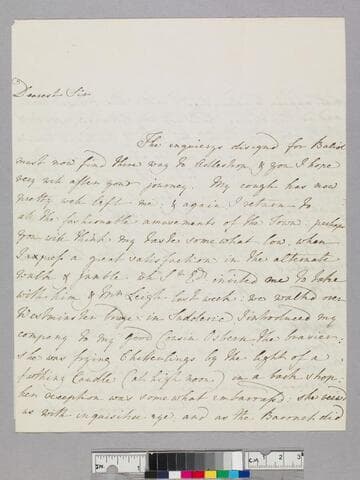 Dearest Sir
The enquierys disignd for Baliol
must now find there way to Adlestrop & you I hope
very well after your journey. My cough has now
pretty well left me: & again I return to
all the fashionable amusements of the Town. perhaps
you will think my taste somewhat low, when
I express a great satisfaction in the alternate
walk & jumble wch Sr Ed invited me to take
with him & Mrs Leigh last week: we walk'd over
Westminster Bridge in
I introduced my
company to my good Cousin the brasier:
she was frying by the light of a
farthing Candle (at high noon) in a back shop:
her reception was somewhat embarrass'd: she view'd
us with inquisitive eye and as the Barronet did